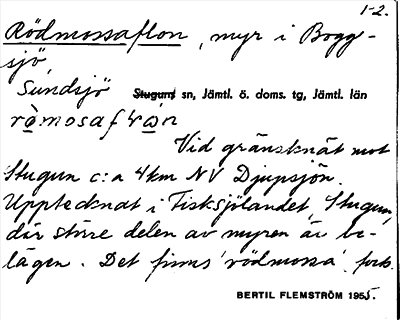 1-2.
Rödmossaflon, myr i Bogg-
sjö,
Sundsjö Stuguns sn, Jämtl. ö. doms. tg, Jämtl. län
Vid gränsknät mot
Stugun c:a 4 km NV Djupsjön.
Upptecknat i Fisksjölandet, Stugun,
där större delen av myren är be-
lägen. Det finns 'rödmossa'
BERTIL FLEMSTRÖM 1955.